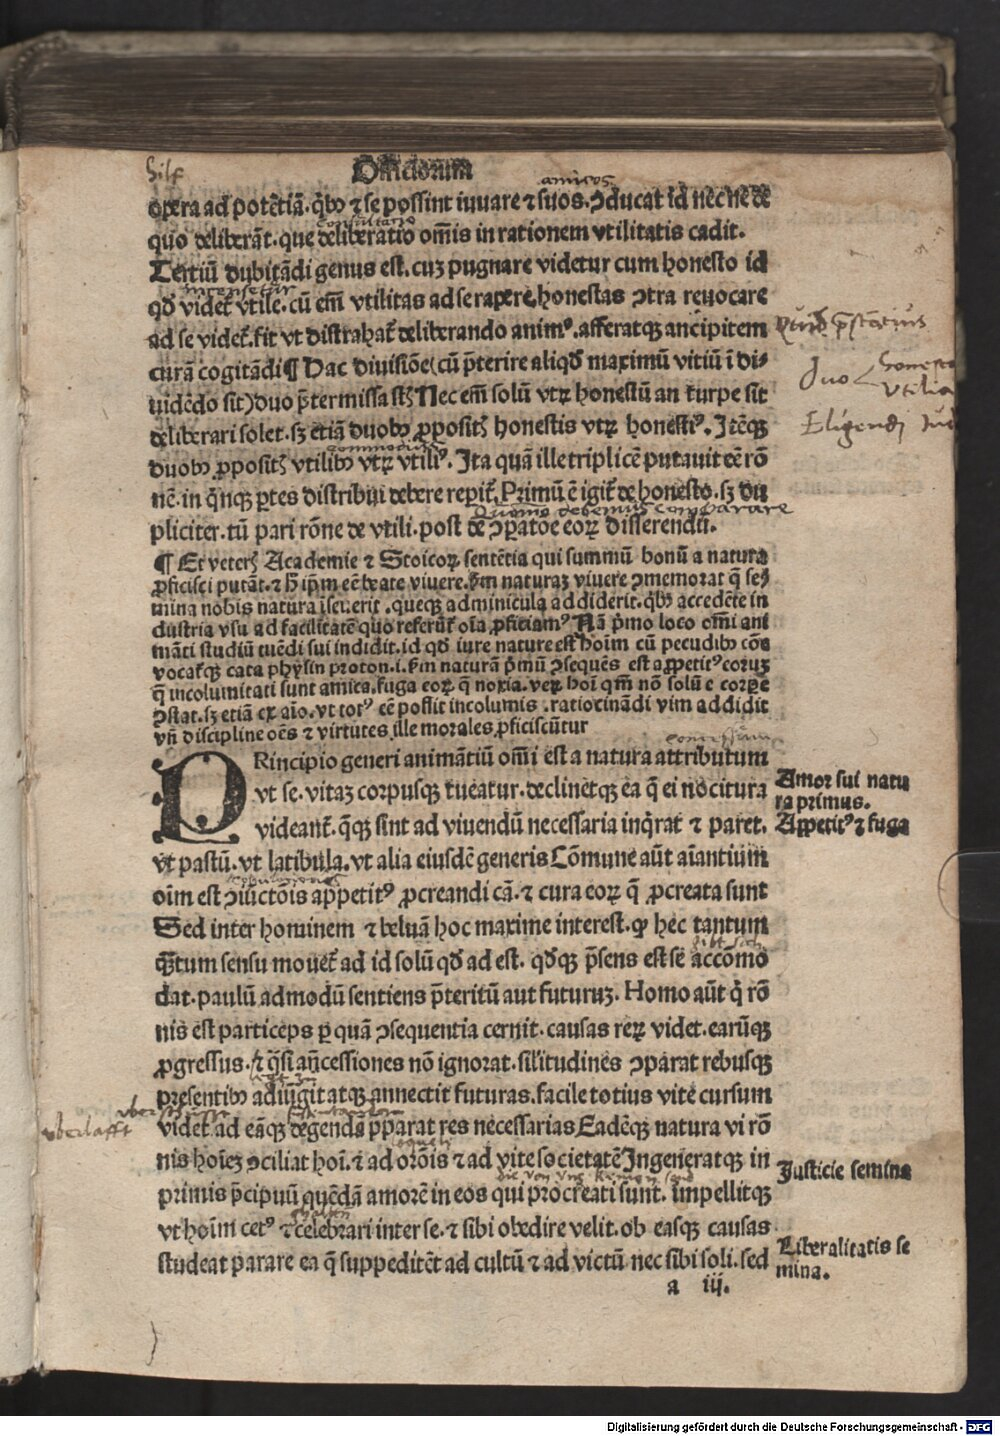 hilf
Officiorum
amicos
opera ad potētiā. qͥbꝰ ⁊ se possint iuuare ⁊ suos. ꝯducat id necne de
consultatio
quo deliberāt. que deliberatio om̄is in rationem vtilitatis cadit.
Tertiū dubitādi genus est. cuꝫ pugnare videtur cum honesto id
qd̓ videt᷑ vtile. cū em̄ vtilitas ad se rapere, honestas ꝯtra reuocare
ad se videt᷑. fit vt distrahat᷑ deliberando animꝰ. afferatqꝫ ancipitem
curā cogitādi ¶ Hac diuisiōe (cū p̄terire aliqd̓ maximū vitiū ī di⸗
uidēdo sit) duo p̄termissa st̄ Nec em̄ solū vtꝝ honestū an turpe sit
Duo honesta
vtilia
deliberari solet. sꝫ etiā duobꝰ ꝓpositꝭ honestis vtꝝ honestiꝰ. Itēqꝫ
Eligendi
commodius
duobꝰ ꝓpositꝭ vtilibꝰ vtꝝ vtiliꝰ. Ita quā ille triplicē putauit eē rō
nē. in qͥnqꝫ ꝑtes distribui debere reꝑit᷑. Primū ē igit᷑ de honesto. sꝫ du
Quomo debemus comparare
pliciter. tū pari rōne de vtili. post de ꝯꝑatōe eoꝝ disserendū.
¶ Et veterꝭ Academie ⁊ Stoicoꝝ sentētia qui summū bonū a natura
ꝓficisci putāt. ⁊ h̓ ip̄m eē beate viuere. scd̓m naturaꝫ viuere ꝯmemorat q̄ se⸗
mina nobis natura iseuerit. queqꝫ adminicula addiderit. qͥbꝰ accedēte in
dustria vsu ad facilitatē quo referūt᷑ oīa ꝓficiamꝰ Nā p̄mo loco om̄i ani
māti studiū tuēdi sui indidit. id qd̓ iure nature est hoīm cū pecudibꝰ cōe
vocat᷑qꝫ cata physin proton .i. scd̓m naturā p̄mū ꝯsequēs est appetitꝰ eoruꝫ
q̄ incolumitati sunt amica. fuga eoꝝ q̄ noxia. veꝝ hoī qm̄ nō solū e corꝑe
ꝯstat. sꝫ etiā ex aīo. vt totꝰ eē possit incolumis. ratiocinādi vim addidit
vn̄ discipline oēs ⁊ virtutes ille morales ꝓficiscūtur
concessum
PRincipio generi animātiū om̄i est a natura attributum
vt se. vitaꝫ corpusqꝫ tueatur. declinetqꝫ ea q̄ ei nocitura
Amor sui natu
ra primus.
videant᷑. q̄qꝫ sint ad viuendū necessaria inqͥrat ⁊ paret.
Appetitꝰ ⁊ fuga
vt pastū. vt latibula. vt alia eiusdē generis Cōmune aūt aīantium
oīm est ꝯiūctōis appetitꝰ ꝓcreandi cā. ⁊ cura eoꝝ q̄ ꝓcreata sunt
Sed inter hominem ⁊ beluā hoc maxime interest. ꝙ hec tantum
gibt sich
q̄tum sensu mouet᷑ ad id solū qd̓ ad est. qd̓qꝫ p̄sens est se accōmo
dat. paulū admodū sentiens p̄teritū aut futuruꝫ. Homo aūt qͥ rō
nis est particeps ꝑ quā ꝯsequentia cernit. causas reꝝ videt. earūqꝫ
ꝓgressus. ⁊ q̄si an̄cessiones nō ignorat. sil̓itudines ꝯparat rebusqꝫ
presentibꝰ adiūgit atqꝫ annectit futuras. facile totius vite cursum
videt. ad eāqꝫ degendā p̄parat res necessarias Eadēqꝫ natura vi rō
nis hoīeꝫ ꝯciliat hoī. ⁊ ad orōis ⁊ ad vite societatē Ingeneratqꝫ in
Justicie semina
primis p̄cipuū quēdā amorē in eos qui procreati sunt. impellitqꝫ
vt hoīm cetꝰ ⁊ celebrari inter se. ⁊ sibi obedire velit. ob easqꝫ causas
studeat parare ea q̄ suppeditēt ad cultū ⁊ ad victū nec sibi soli. sed
Liberalitatis se
mina.
a iij.
Digitalisierung gefördert durch die Deutsche Forschungsgemeinschaft - DFG